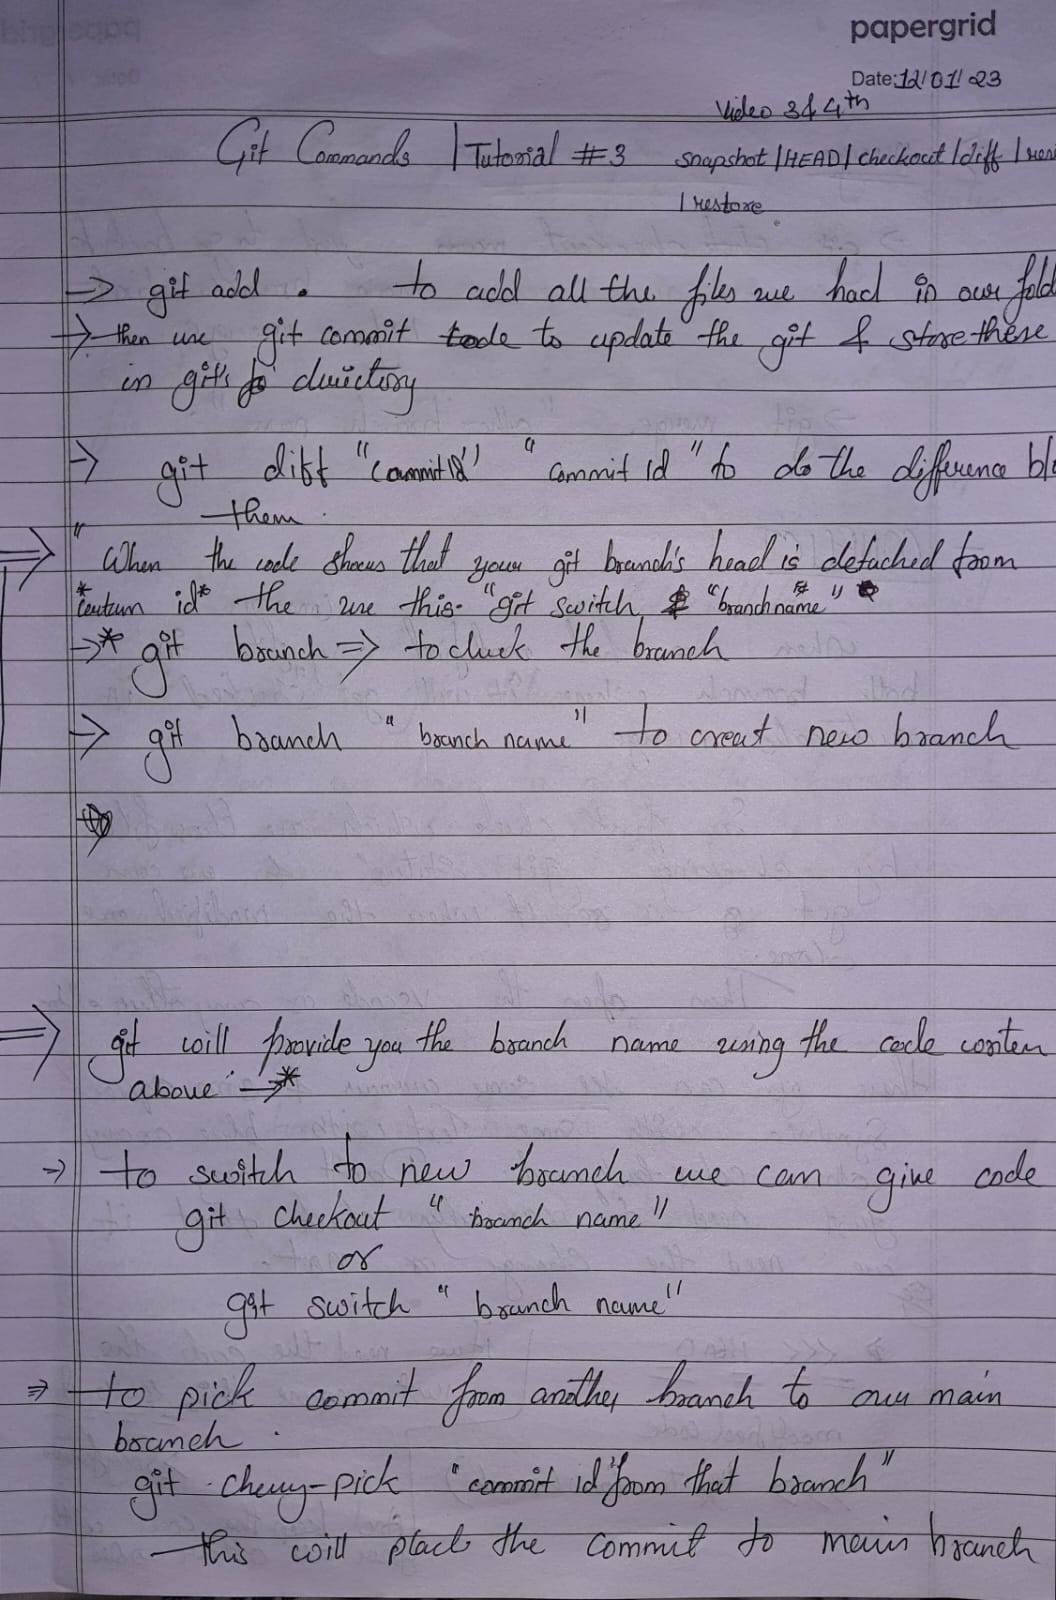 papergrid
Date: 12/01/23
Video 3 & 4th
Git Commands | Tutorial #3 snapshot | HEAD | checkout | diff |
| restore
→ git add . to add all the files we had in our fold
→ then use git commit code to update the git & store these
in git's directory
→ git diff "commit id" "commit id" to do the difference b/
them.
⇒ " When the code shows that your git branch's head is detached from
* certain id* the use this- "git switch "branch name"
→* git branch ⇒ to check the branch
→ git branch "branch name" to creat new branch
⇒ git will provide you the branch name using the code
above →*
⇒ to switch to new branch we can give code
git checkout "branch name"
or
git switch "branch name"
⇒ to pick commit from another branch to our main
branch.
git cherry-pick "commit id from that branch"
this will place the commit to main branch